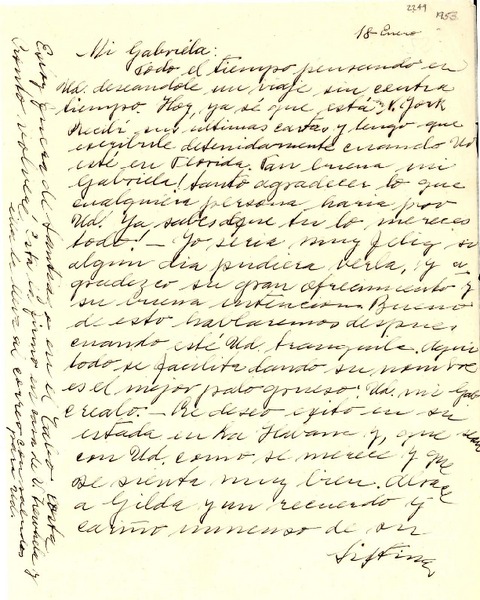 2249
1953
18 Enero
Mi Gabriela:
Todo el tiempo pensando en
Ud. deseándole un viaje sin contra
tiempo. Hoy, ya sé que está N. York
Recibí sus ultimas cartas y tengo que
escribirle detenidamente cuando Ud
esté en Florida. Tan buena mi
Gabriela! tanto agradecer lo que
cualquiera persona haria por
Ud. Ya, sabes que tu lo mereces
todo! — Yo, seria muy feliz si
algun dia pudiera verla, y a
gradezco su gran ofrecimiento y
su buena intencion. Bueno
de esto hablaremos despues
cuando esté Ud. tranquila. Aqui
todo se facilita dando su nombre
es el mejor palo grueso! Ud. mi Gab
crealo. — Le deseo exito en su
estada en La Havana y, que sean
con Ud. como se merece y que
se sienta muy bien.
a Gilda y un recuerdo y
cariño inmenso de su
Estoy fuera de Santiago en el Tabo Costa
Pronto volveré!